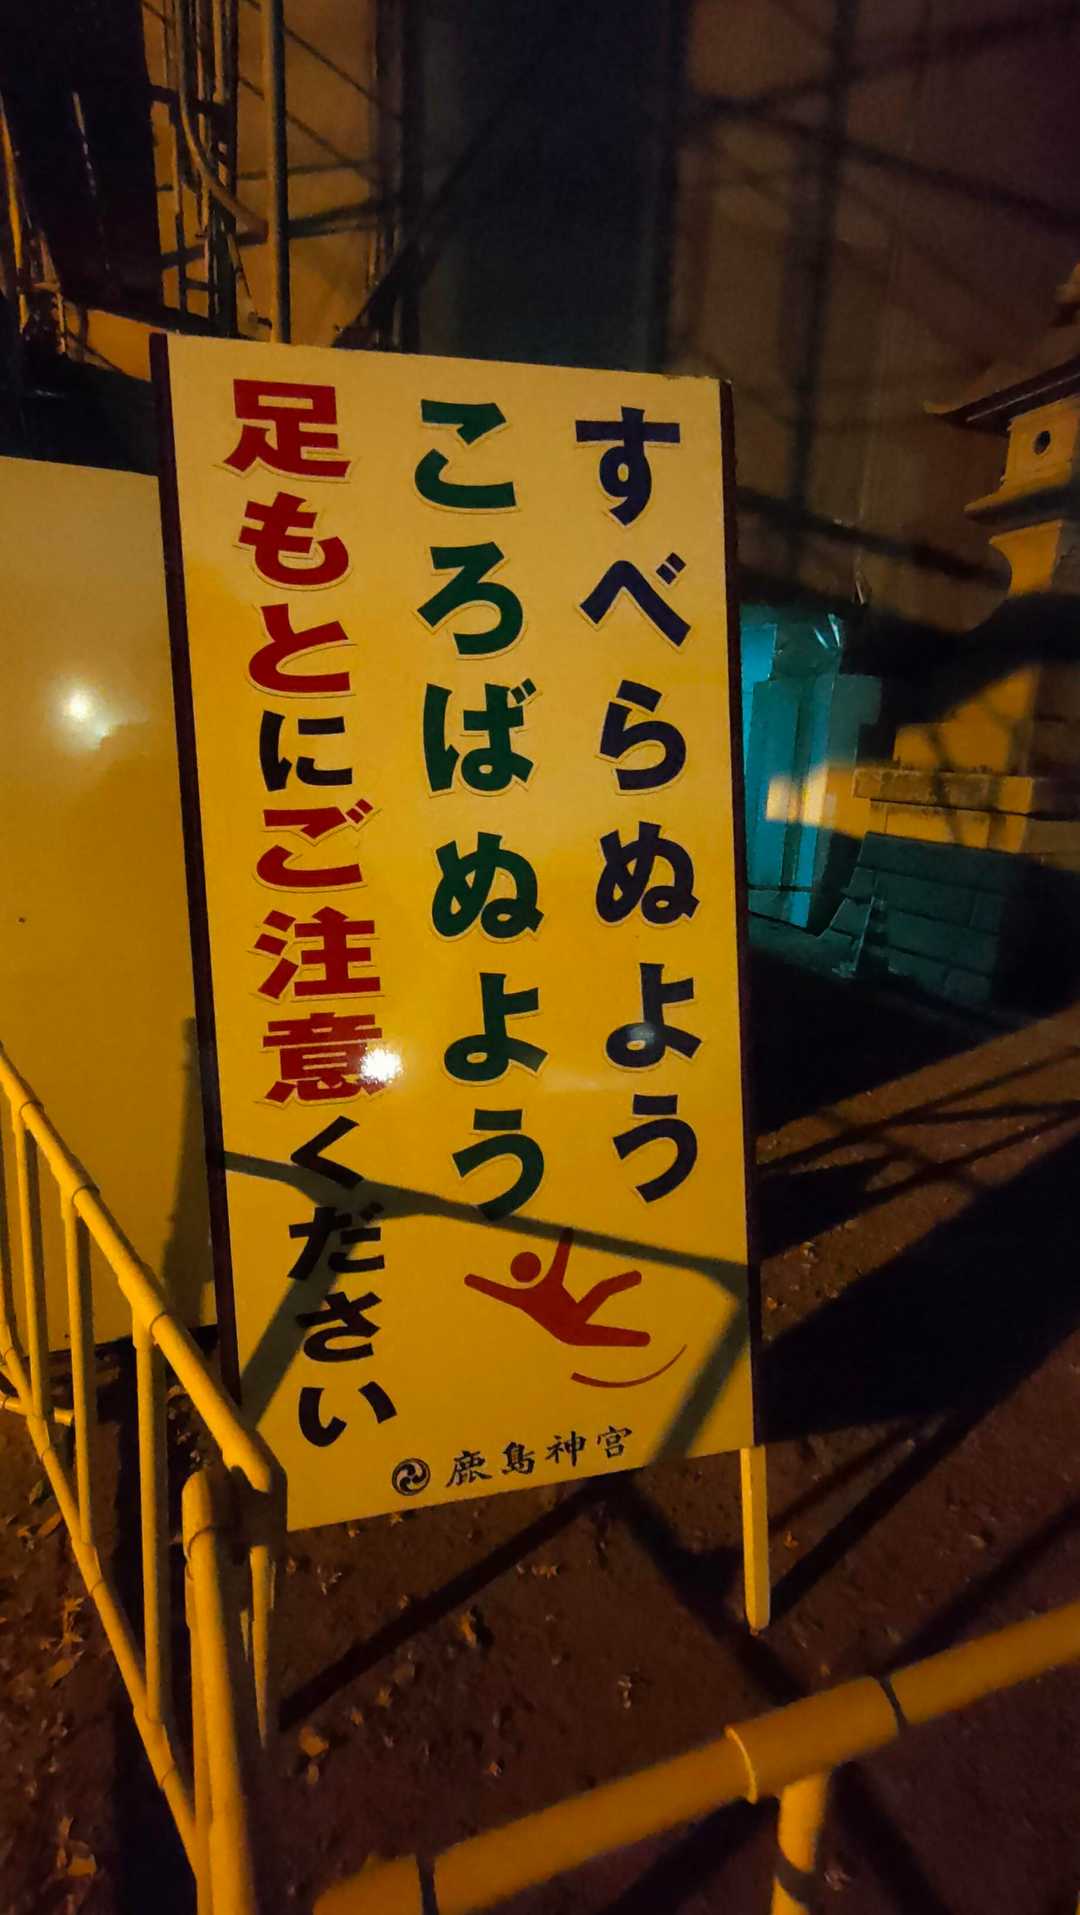 すべらぬよう
ころばぬよう
足もとにご注意ください
鹿島神宮